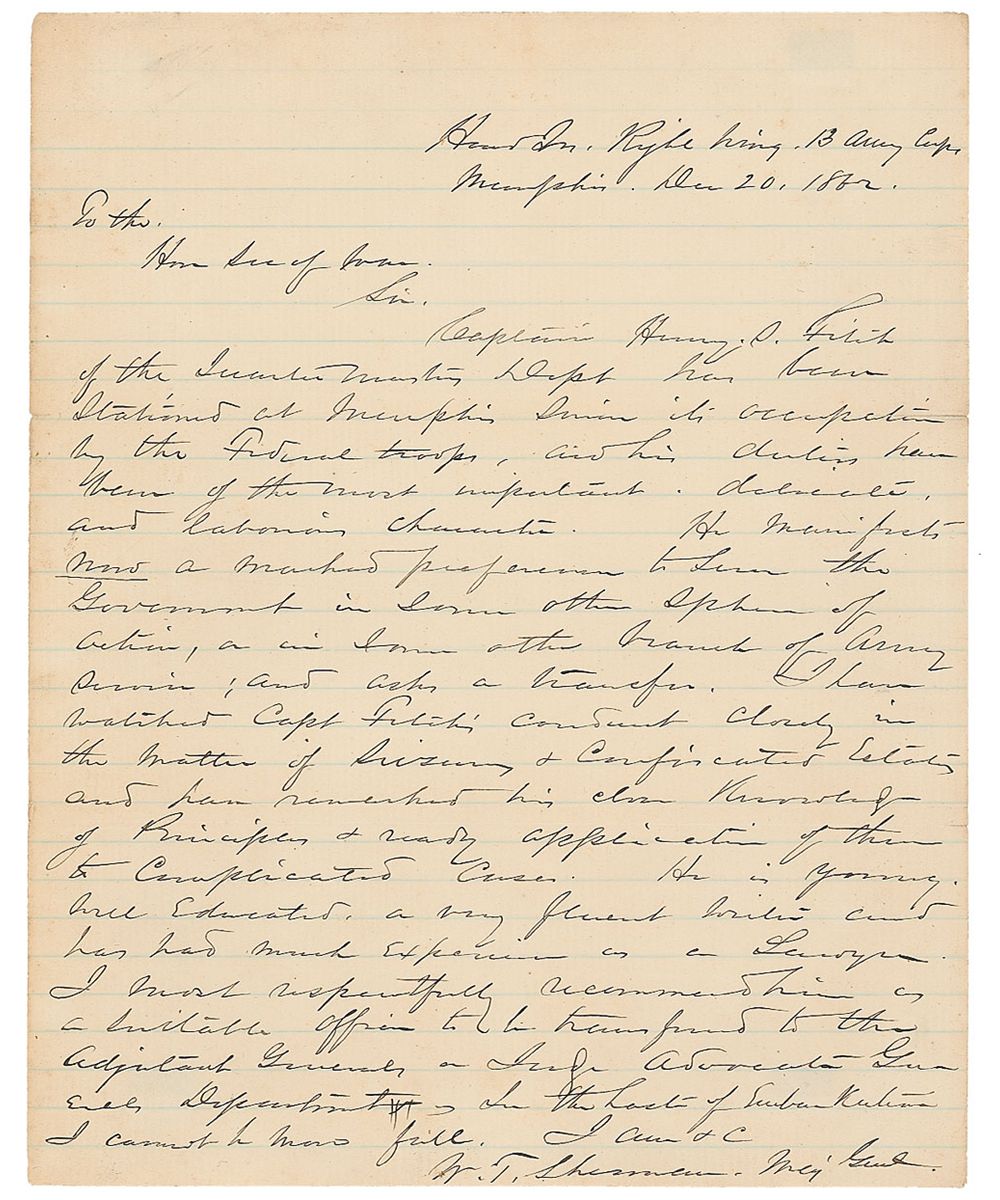 Head Qrs. Right Wing. 13 Army Corps
Memphis. Dec 20. 1862.
To the.
Hon Sec of War.
Sir.
Captain Henry. S. Fitch
of the Quarter Masters Dept has been
Stationed at Memphis Since its occupation
by the Federal troops, and his duties have
been of the most important. delicate,
and laborious character. He Manifests
now a marked preference to Serve the
Government in Some other Sphere of
action, or in Some other branch of Army
Service; and asks a transfer. I have
watched Capt Fitch's conduct closely in
the Matter of Seizures & Confiscated Estates
and have remarked his close Knowledge
of Principles & ready application of them
to Complicated Cases. He is young.
Well Educated. a very fluent writer and
has had much Experience as a Lawyer.
I most respectfully recommend him as
a suitable officer to be transferred to the
Adjutant Generals or Judge Advocate Gen
erals Department In the haste of Embarkation
I cannot be more full. I am &c
W. T. Sherman. Maj Genl.